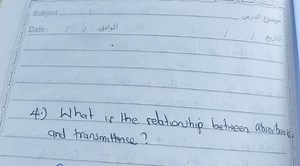 Subject موضوع الدرس
Date: / / الموافق / / التاريخ
4.) What is the relationship between absorbance
and transmittance?